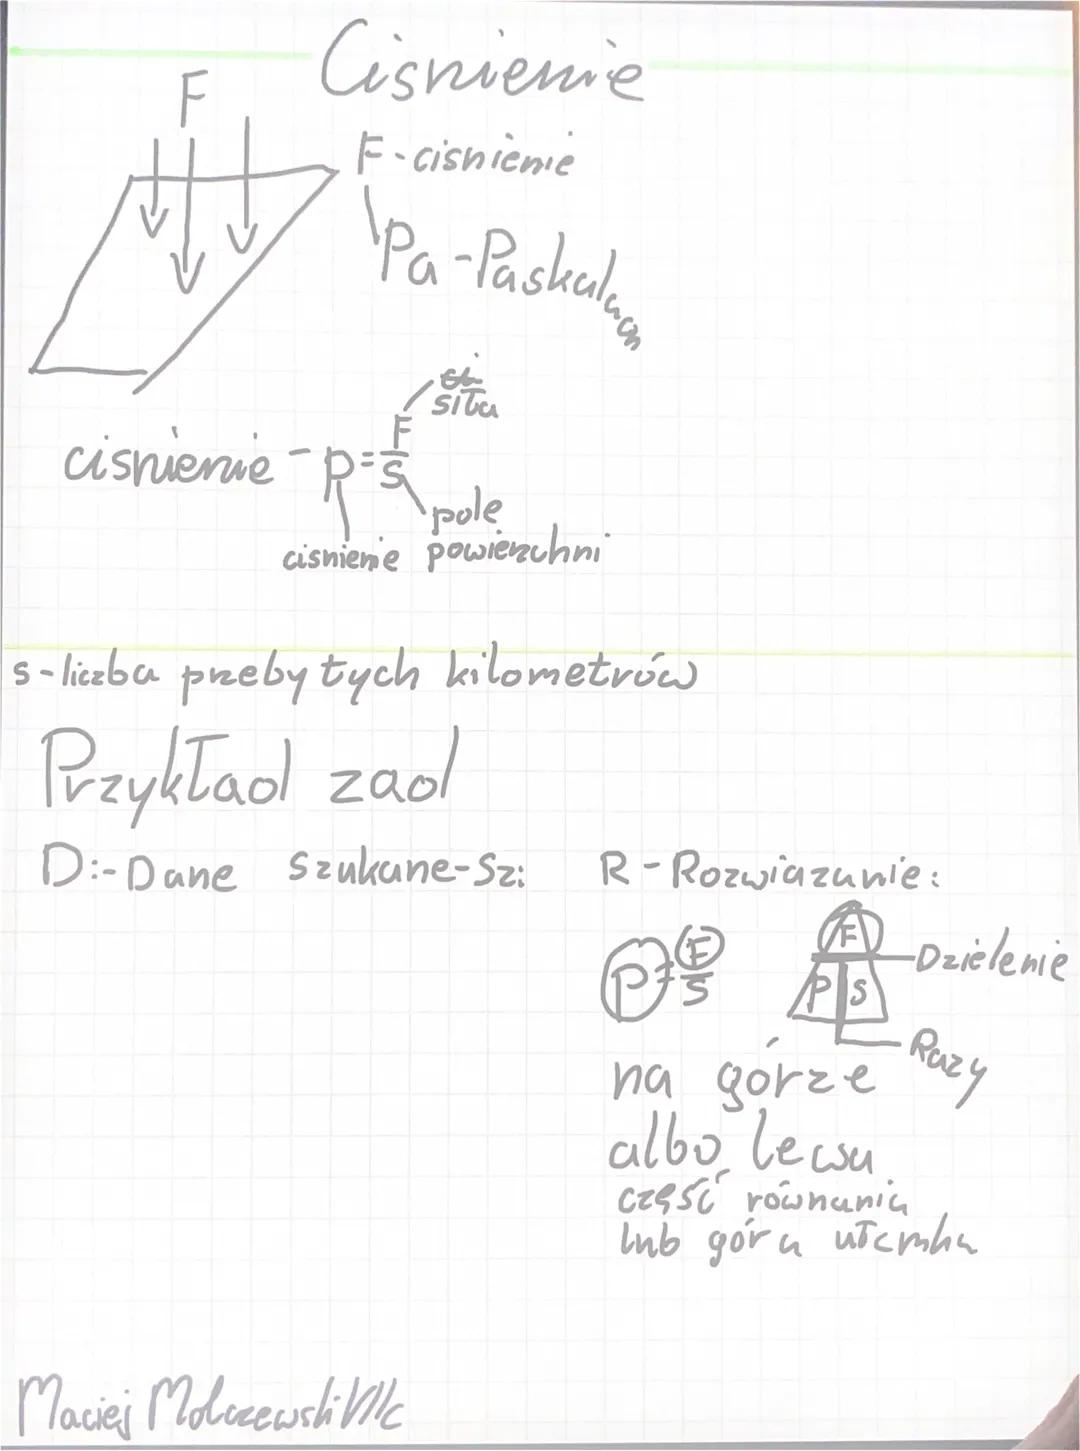 Ciśnienie
F
F-ciśnienie
Pa-Paskalach
siła
ciśnienie - p=F/S
pole
ciśnienie powierzchni
s-liczba przebytych kilometrów
Przykład zad
D:-Dane Szukane-Sz: R-Rozwiazanie:
p=F/S
F
P S
Dzielenie
Razy
na górze
albo lewa
część równania
lub góra ułamka
Maciej